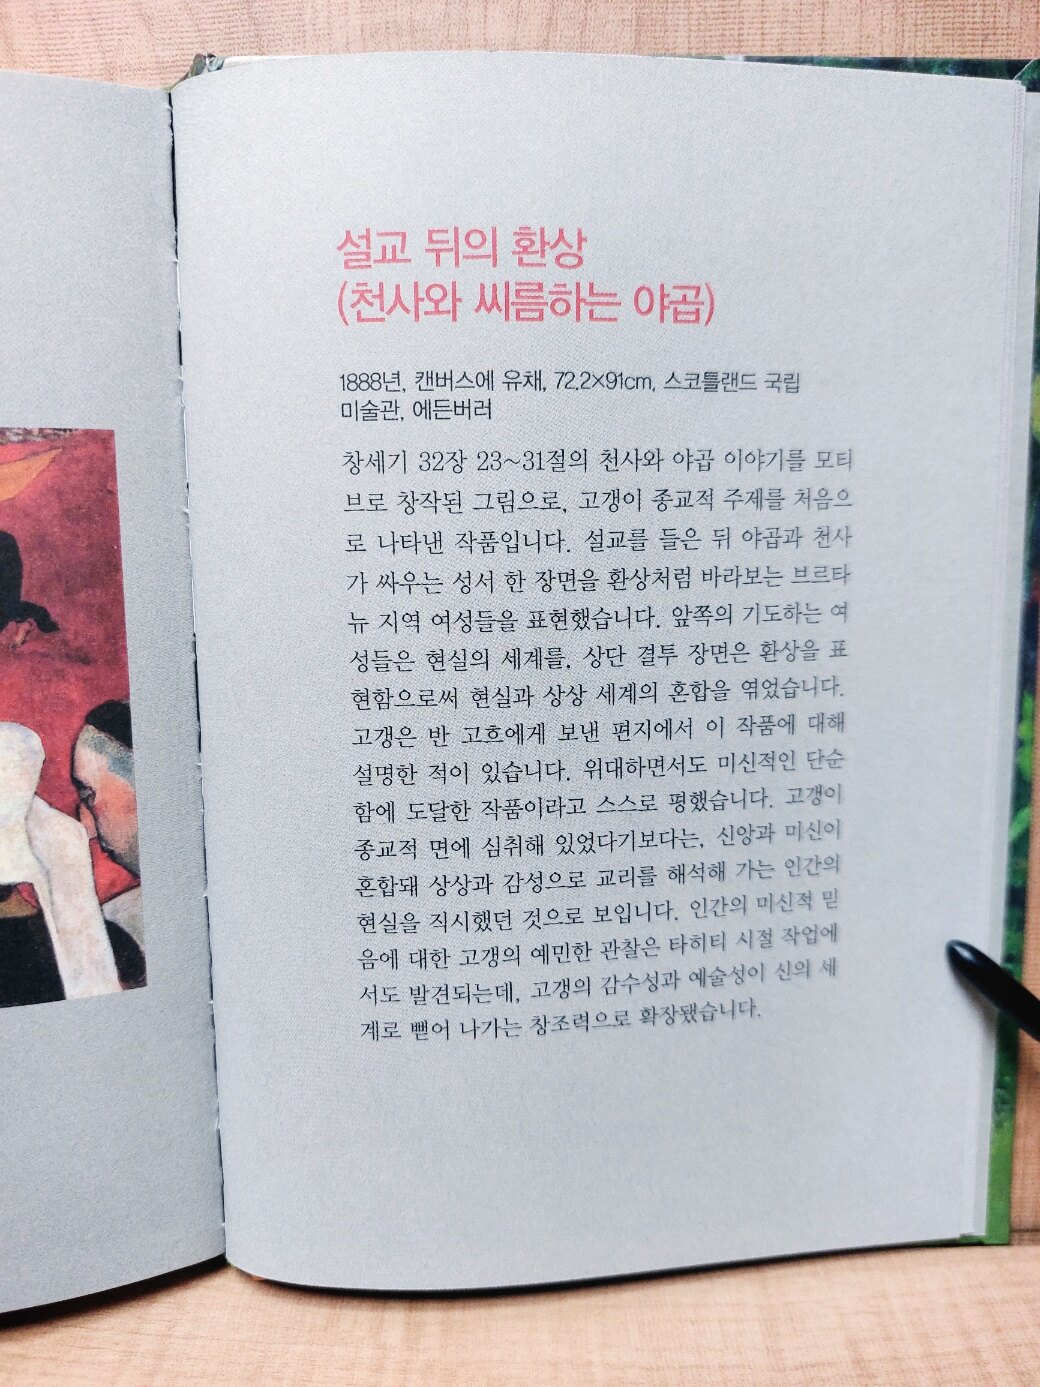 설교 뒤의 환상
(천사와 씨름하는 야곱)
1888년, 캔버스에 유채, 72.2×91cm, 스코틀랜드 국립
미술관, 에든버러
창세기 32장 23~31절의 천사와 야곱 이야기를 모티
브로 창작된 그림으로, 고갱이 종교적 주제를 처음으
로 나타낸 작품입니다. 설교를 들은 뒤 야곱과 천사
가 싸우는 성서 한 장면을 환상처럼 바라보는 브르타
뉴 지역 여성들을 표현했습니다. 앞쪽의 기도하는 여
성들은 현실의 세계를, 상단 결투 장면은 환상을 표
현함으로써 현실과 상상 세계의 혼합을 엮었습니다.
고갱은 반 고흐에게 보낸 편지에서 이 작품에 대해
설명한 적이 있습니다. 위대하면서도 미신적인 단순
함에 도달한 작품이라고 스스로 평했습니다. 고갱이
종교적 면에 심취해 있었다기보다는, 신앙과 미신이
혼합돼 상상과 감성으로 교리를 해석해 가는 인간의
현실을 직시했던 것으로 보입니다. 인간의 미신적 믿
음에 대한 고갱의 예민한 관찰은 타히티 시절 작업에
서도 발견되는데, 고갱의 감수성과 예술성이 신의 세
계로 뻗어 나가는 창조력으로 확장됐습니다.